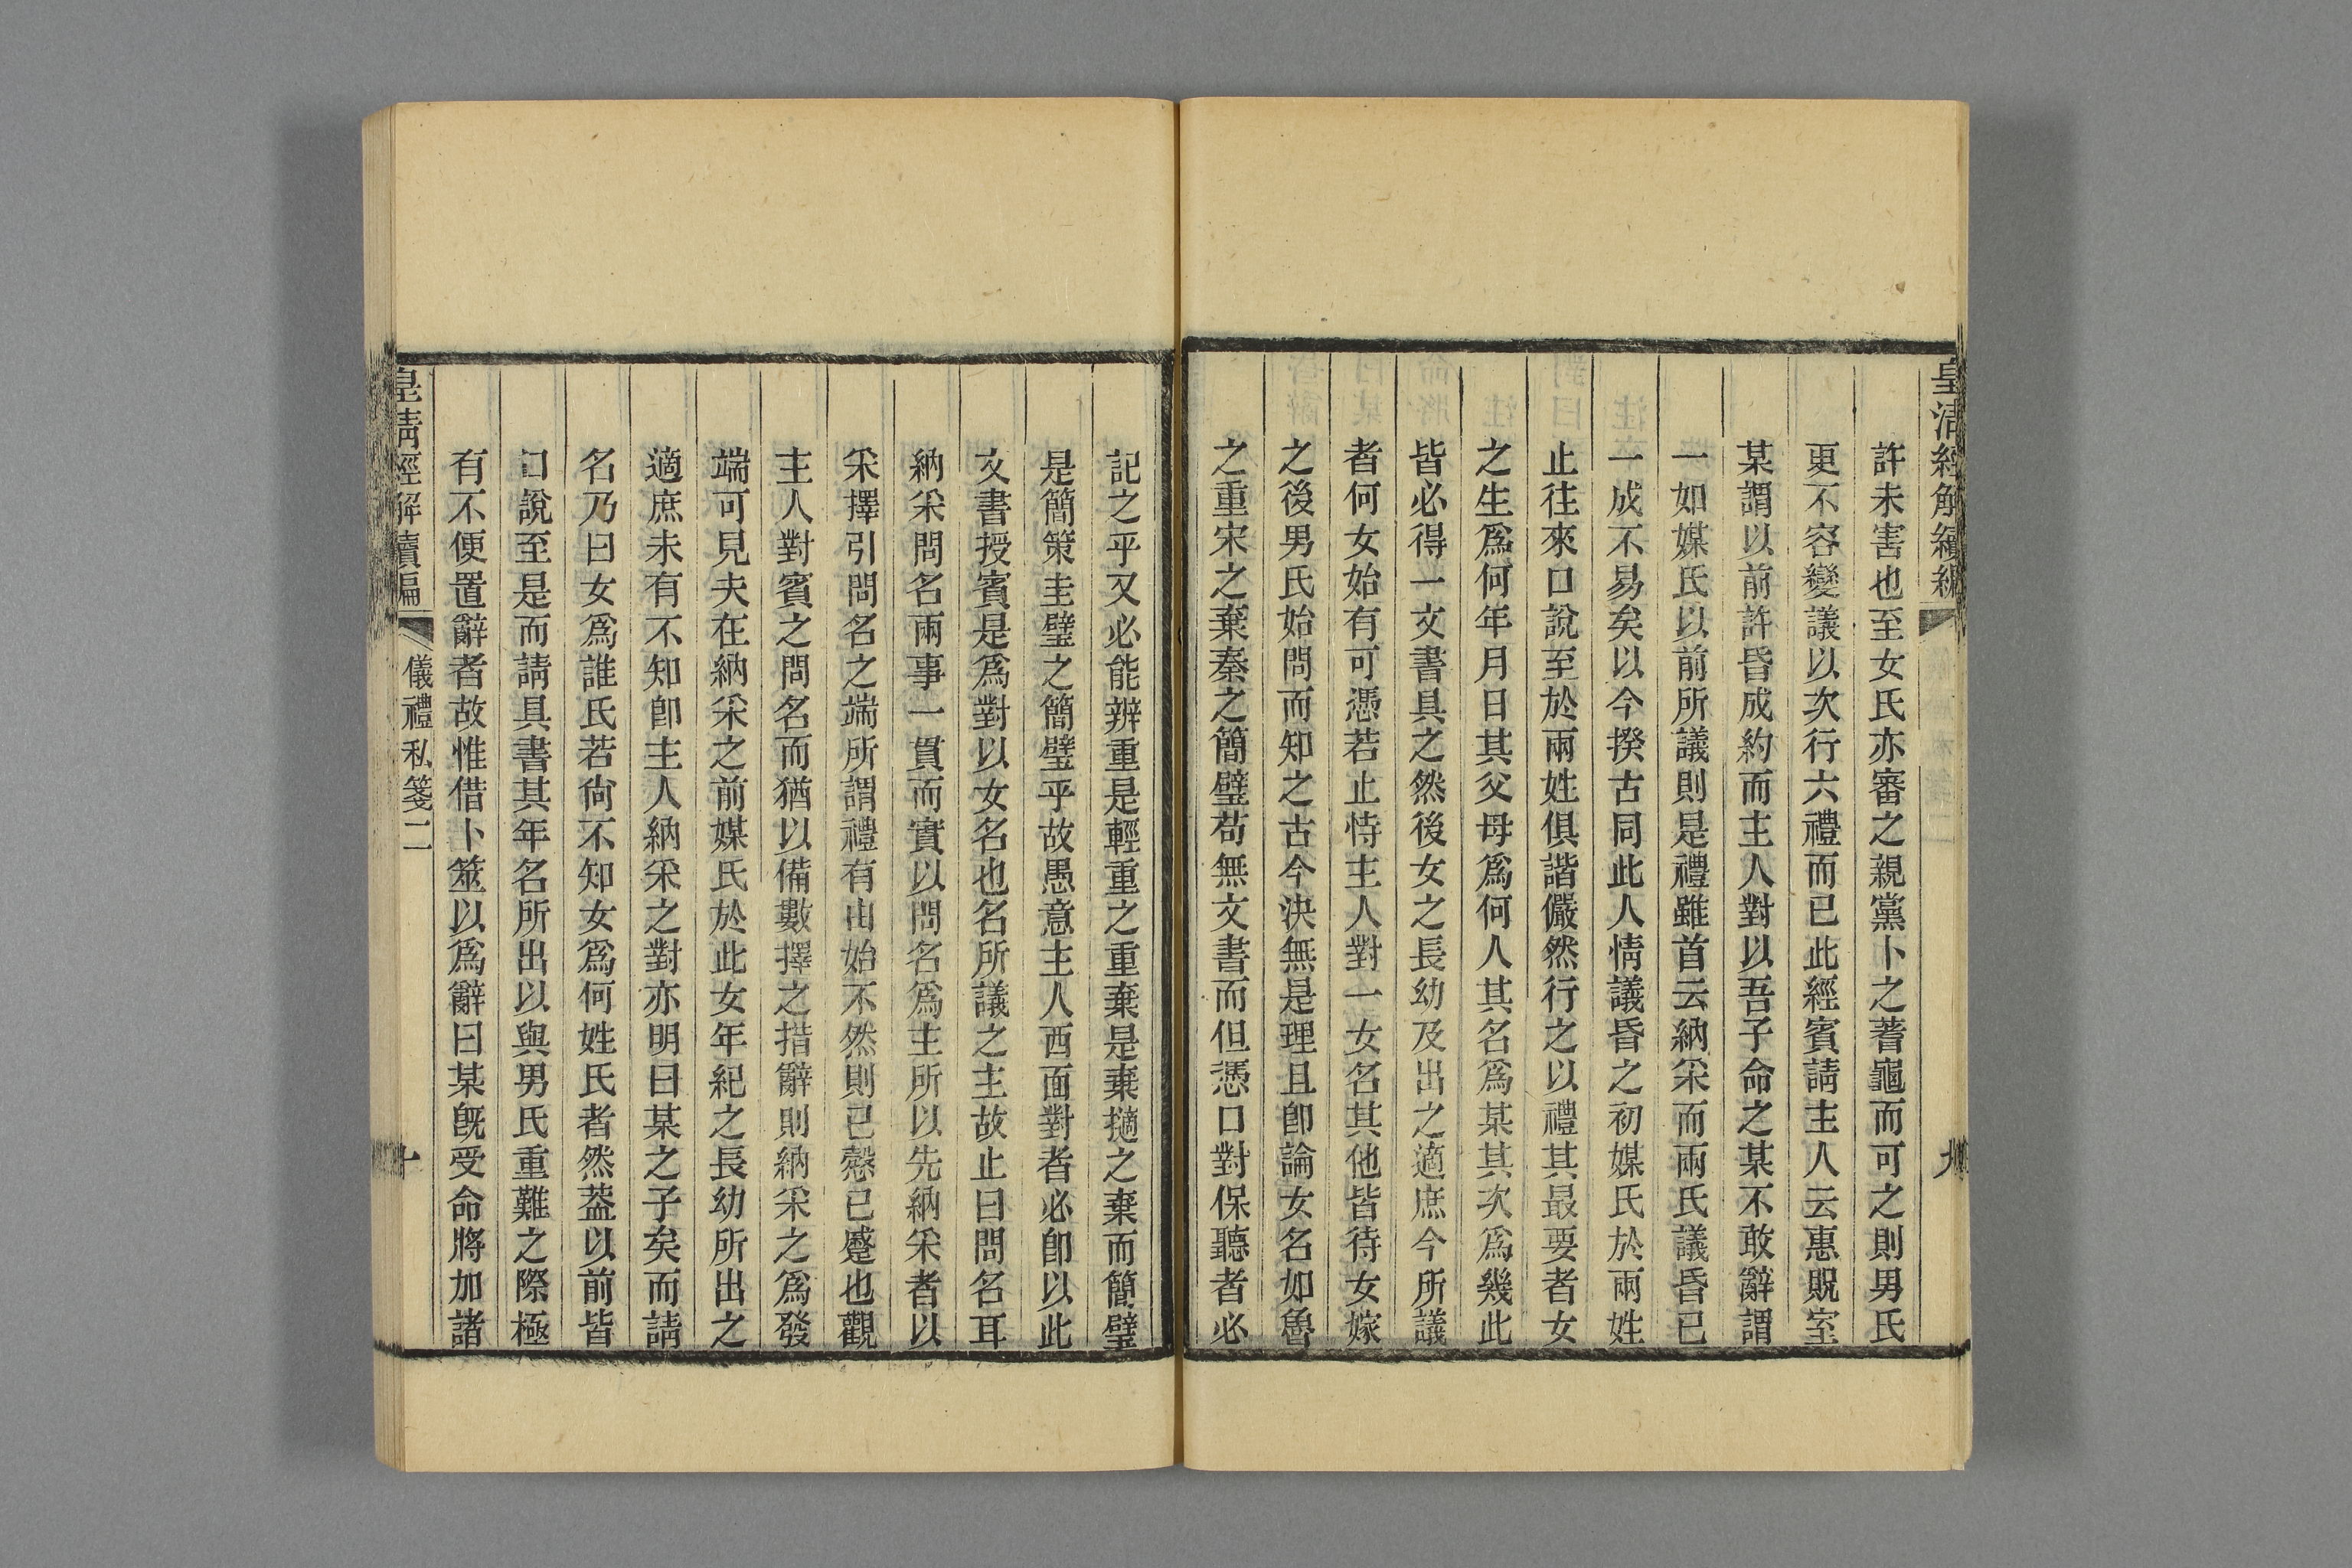 皇清經解續編
九
許未害也至女氏亦審之親黨卜之蓍龜而可之則男氏
更不容變議以次行六禮而已此經賓請主人云惠貺室
某謂以前許昏成約而主人對以吾子命之某不敢辭謂
一如媒氏以前所議則是禮雖首云納采而兩氏議昏已
一成不易矣以今揆古同此人情議昏之初媒氏於兩姓
止往來口說至於兩姓俱諧儼然行之以禮其最要者女
之生爲何年月日其父母爲何人其名爲某其次爲幾此
皆必得一文書具之然後女之長幼及出之適庶今所議
者何女始有可憑若止恃主人對一女名其他皆待女嫁
之後男氏始問而知之古今決無是理且卽論女名如魯
之重宋之棄秦之簡璧苟無文書而但憑口對保聽者必
記之乎又必能辨重是輕重之重棄是棄擿之棄而簡璧
是簡策圭璧之簡璧乎故愚意主人西面對者必卽以此
文書授賓是爲對以女名也名所議之主故止曰問名耳
納采問名兩事一貫而實以問名爲主所以先納采者以
采擇引問名之端所謂禮有由始不然則已愨已蹙也觀
主人對賓之問名而猶以備數擇之措辭則納采之爲發
端可見夫在納采之前媒氏於此女年紀之長幼所出之
適庶未有不知卽主人納采之對亦明曰某之子矣而請
名乃曰女爲誰氏若尙不知女爲何姓氏者然葢以前皆
口說至是而請具書其年名所出以與男氏重難之際極
有不便置辭者故惟借卜筮以爲辭曰某旣受命將加諸
皇淸經解續編
儀禮私箋二
十